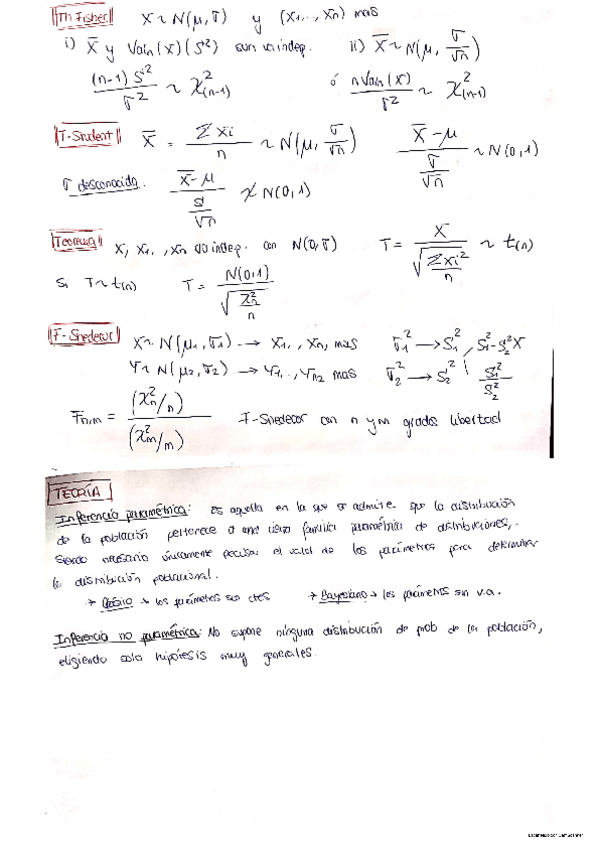 Th Fisher X ~ N(μ, σ) y (X1..., Xn) mas
i) X̄ y Vain(X)(S²) son indep. ii) X̄ ~ N(μ, σ/√n)
(n-1) S²/σ² ~ χ²(n-1) ó nVain(X)/σ² ~ χ²(n-1)
T-Student X̄ = Σxi/n ~ N(μ, σ/√n) (X̄-μ)/(σ/√n) ~ N(0,1)
σ desconocida. (X̄-μ)/(S/√n) ≁ N(0,1)
Teorema X, X1..., Xn indep. con N(0,σ) T = X/√(Σxi²/n) ~ t(n)
Si T ~ t(n) T = N(0,1)/√(χ²n/n)
F-Snedecor X ~ N(μ1, σ1) → X1..., Xn, mas σ1² → S1², S1²-S2² X
Y ~ N(μ2, σ2) → Y1..., Yn2 mas σ2² → S2² S1²/S2²
Fn,m = (χ²n/n)/(χ²m/m) F-Snedecor con n y m grados libertad
TEORÍA
Inferencia paramétrica: es aquella en la que se admite que la distribución
de la población pertenece a una cierta familia paramétrica de distribuciones,
siendo necesario únicamente precisar el valor de los parámetros para determinar
la distribución poblacional.
→ Clásico → los parámetros son ctes → Bayesiano → los parámetros son v.a.
Inferencia no paramétrica: No supone ninguna distribución de prob de la población,
eligiendo solo hipótesis muy generales.